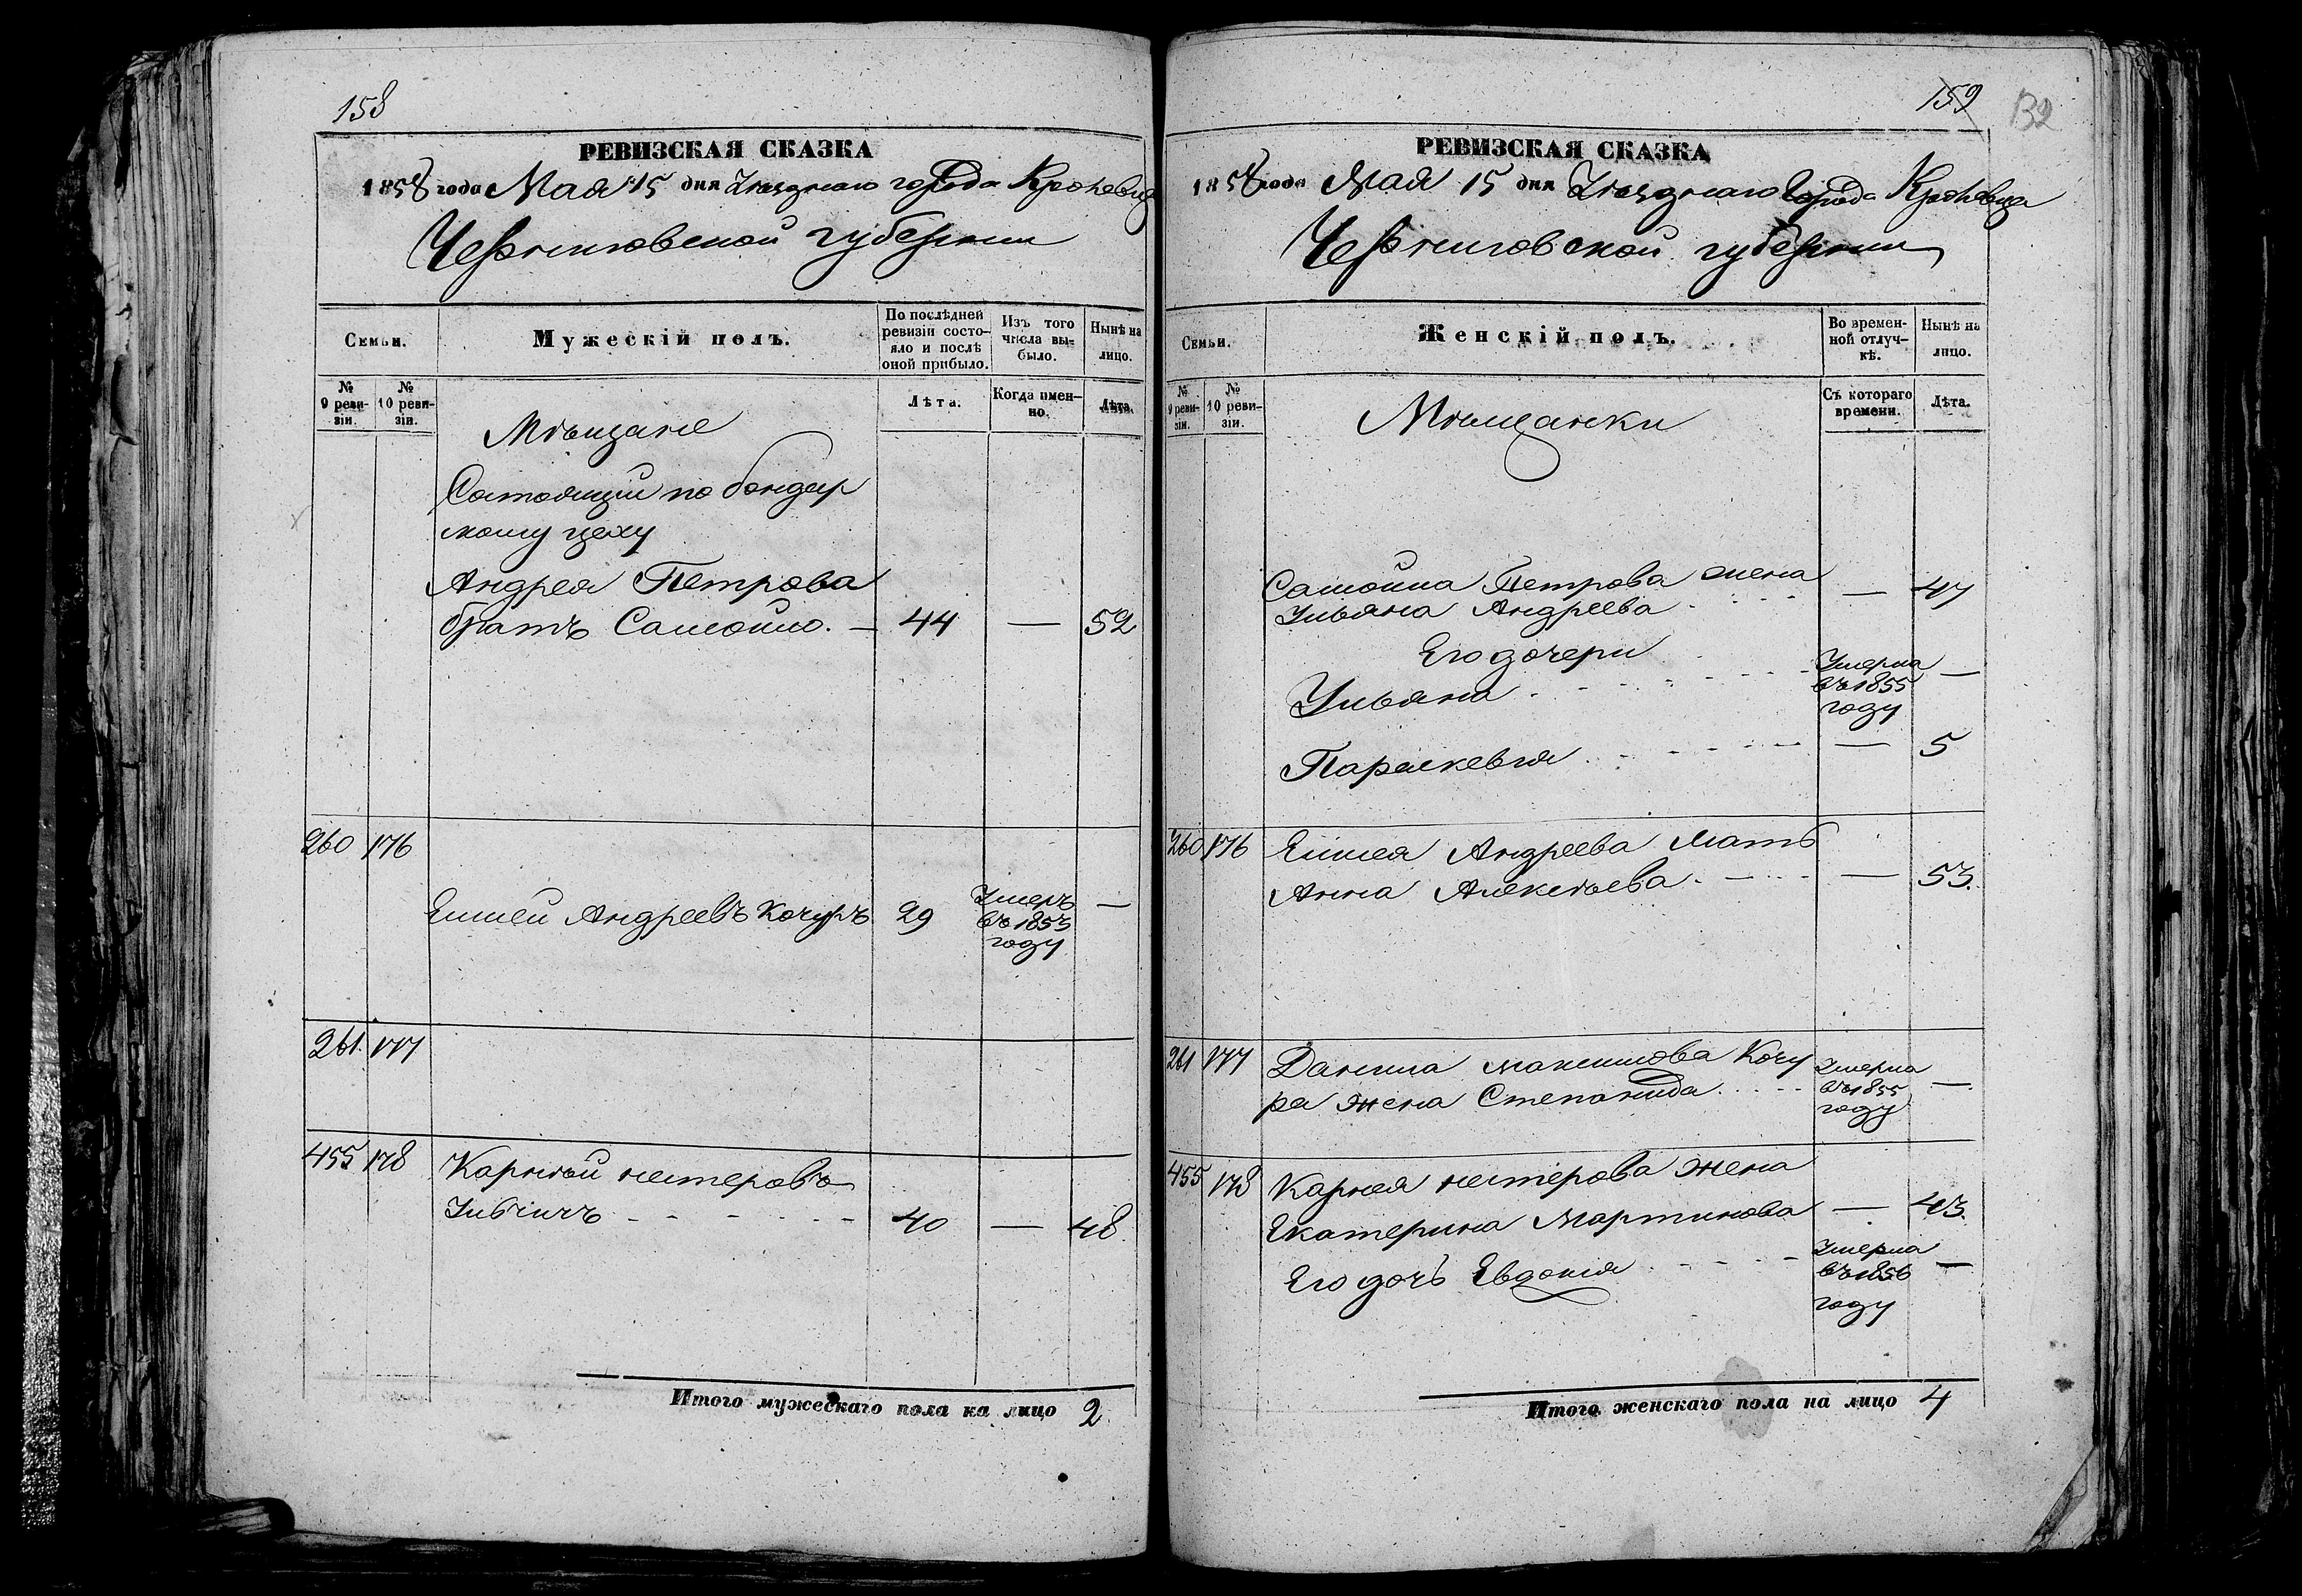 158
РЕВИЗСКАЯ СКАЗКА
1858 года Мая 15 дня Уѣзднаго города Кролевца
Черниговской губернии
Семьи.
Мужескій полъ.
По послѣдней ревизіи состояло и послѣ оной прибыло.
Изъ того числа выбыло.
Нынѣ на лицо.
№ 9 ревизіи.
№ 10 ревизіи.
Лѣта.
Когда именно.
Лѣта.
Мѣщане
Состоящіи по бондар
скому цеху
Андрея Петрова
братъ Самойло. — 44 — 52
260 176
Елисей Андреевъ Кочуръ 29 Умеръ въ 1853 году —
261. 177
455 178 Карнѣй нестеровъ
40 — 48.
Итого мужескаго пола на лицо 2.
159 132
РЕВИЗСКАЯ СКАЗКА
1858 года Мая 15 дня Уѣзднаго Города Кролевца
Черниговской губернии
Семьи.
Женскій полъ.
Во временной отлучкѣ.
Нынѣ на лицо.
№ 9 ревизіи.
№ 10 ревизіи.
Съ котораго времени.
Лѣта.
Мѣщанки
Самойла Петрова жена
Ульяна Андреева — 47
Его дочери
Ульяна Умерла въ 1855 году —
Параскевия — 5
260 176 Елисея Андреева мать
Анна Алексѣева — 53.
261 177 Данила Максимова Кочу
ра жена Степанида Умерла въ 1855 году —
455 178 Карнея нестерова жена
Екатерина Мартинова — 43.
Его дочь Евдокия Умерла въ 1856 году —
Итого женскаго пола на лицо 4